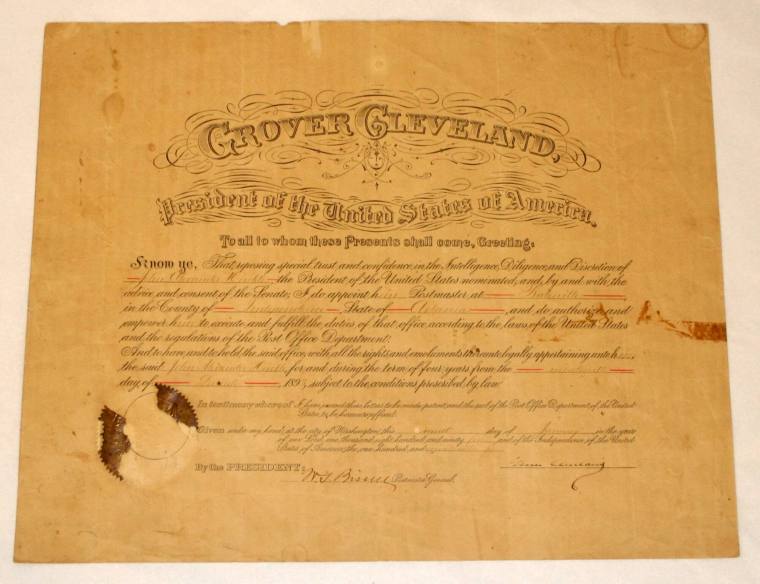 GROVER CLEVELAND,
President of the United States of America.
To all to whom these Presents shall come, Greeting:
Know ye, That reposing special trust and confidence in the Intelligence, Diligence, and Discretion of
the President of the United States nominated, and, by and with the
advice and consent of the Senate, I do appoint him Postmaster at
in the County of State of and do authorize and
empower him to execute and fulfill the duties of that office according to the laws of the United States
and the regulations of the Post Office Department:
And to have and to hold the said office, with all the rights and emoluments thereunto legally appertaining unto him
the said for and during the term of four years from the
day of 189 subject to the conditions prescribed by law.
In testimony whereof I have caused these letters to be made patent, and the seal of the Post Office Department of the United
States to be hereunto affixed.
Given under my hand, at the city of Washington, this day of in the year
of our Lord, one thousand eight hundred and ninety and of the Independence of the United
States of America, the one hundred and
By the PRESIDENT:
W. S. Bissell Postmaster General.